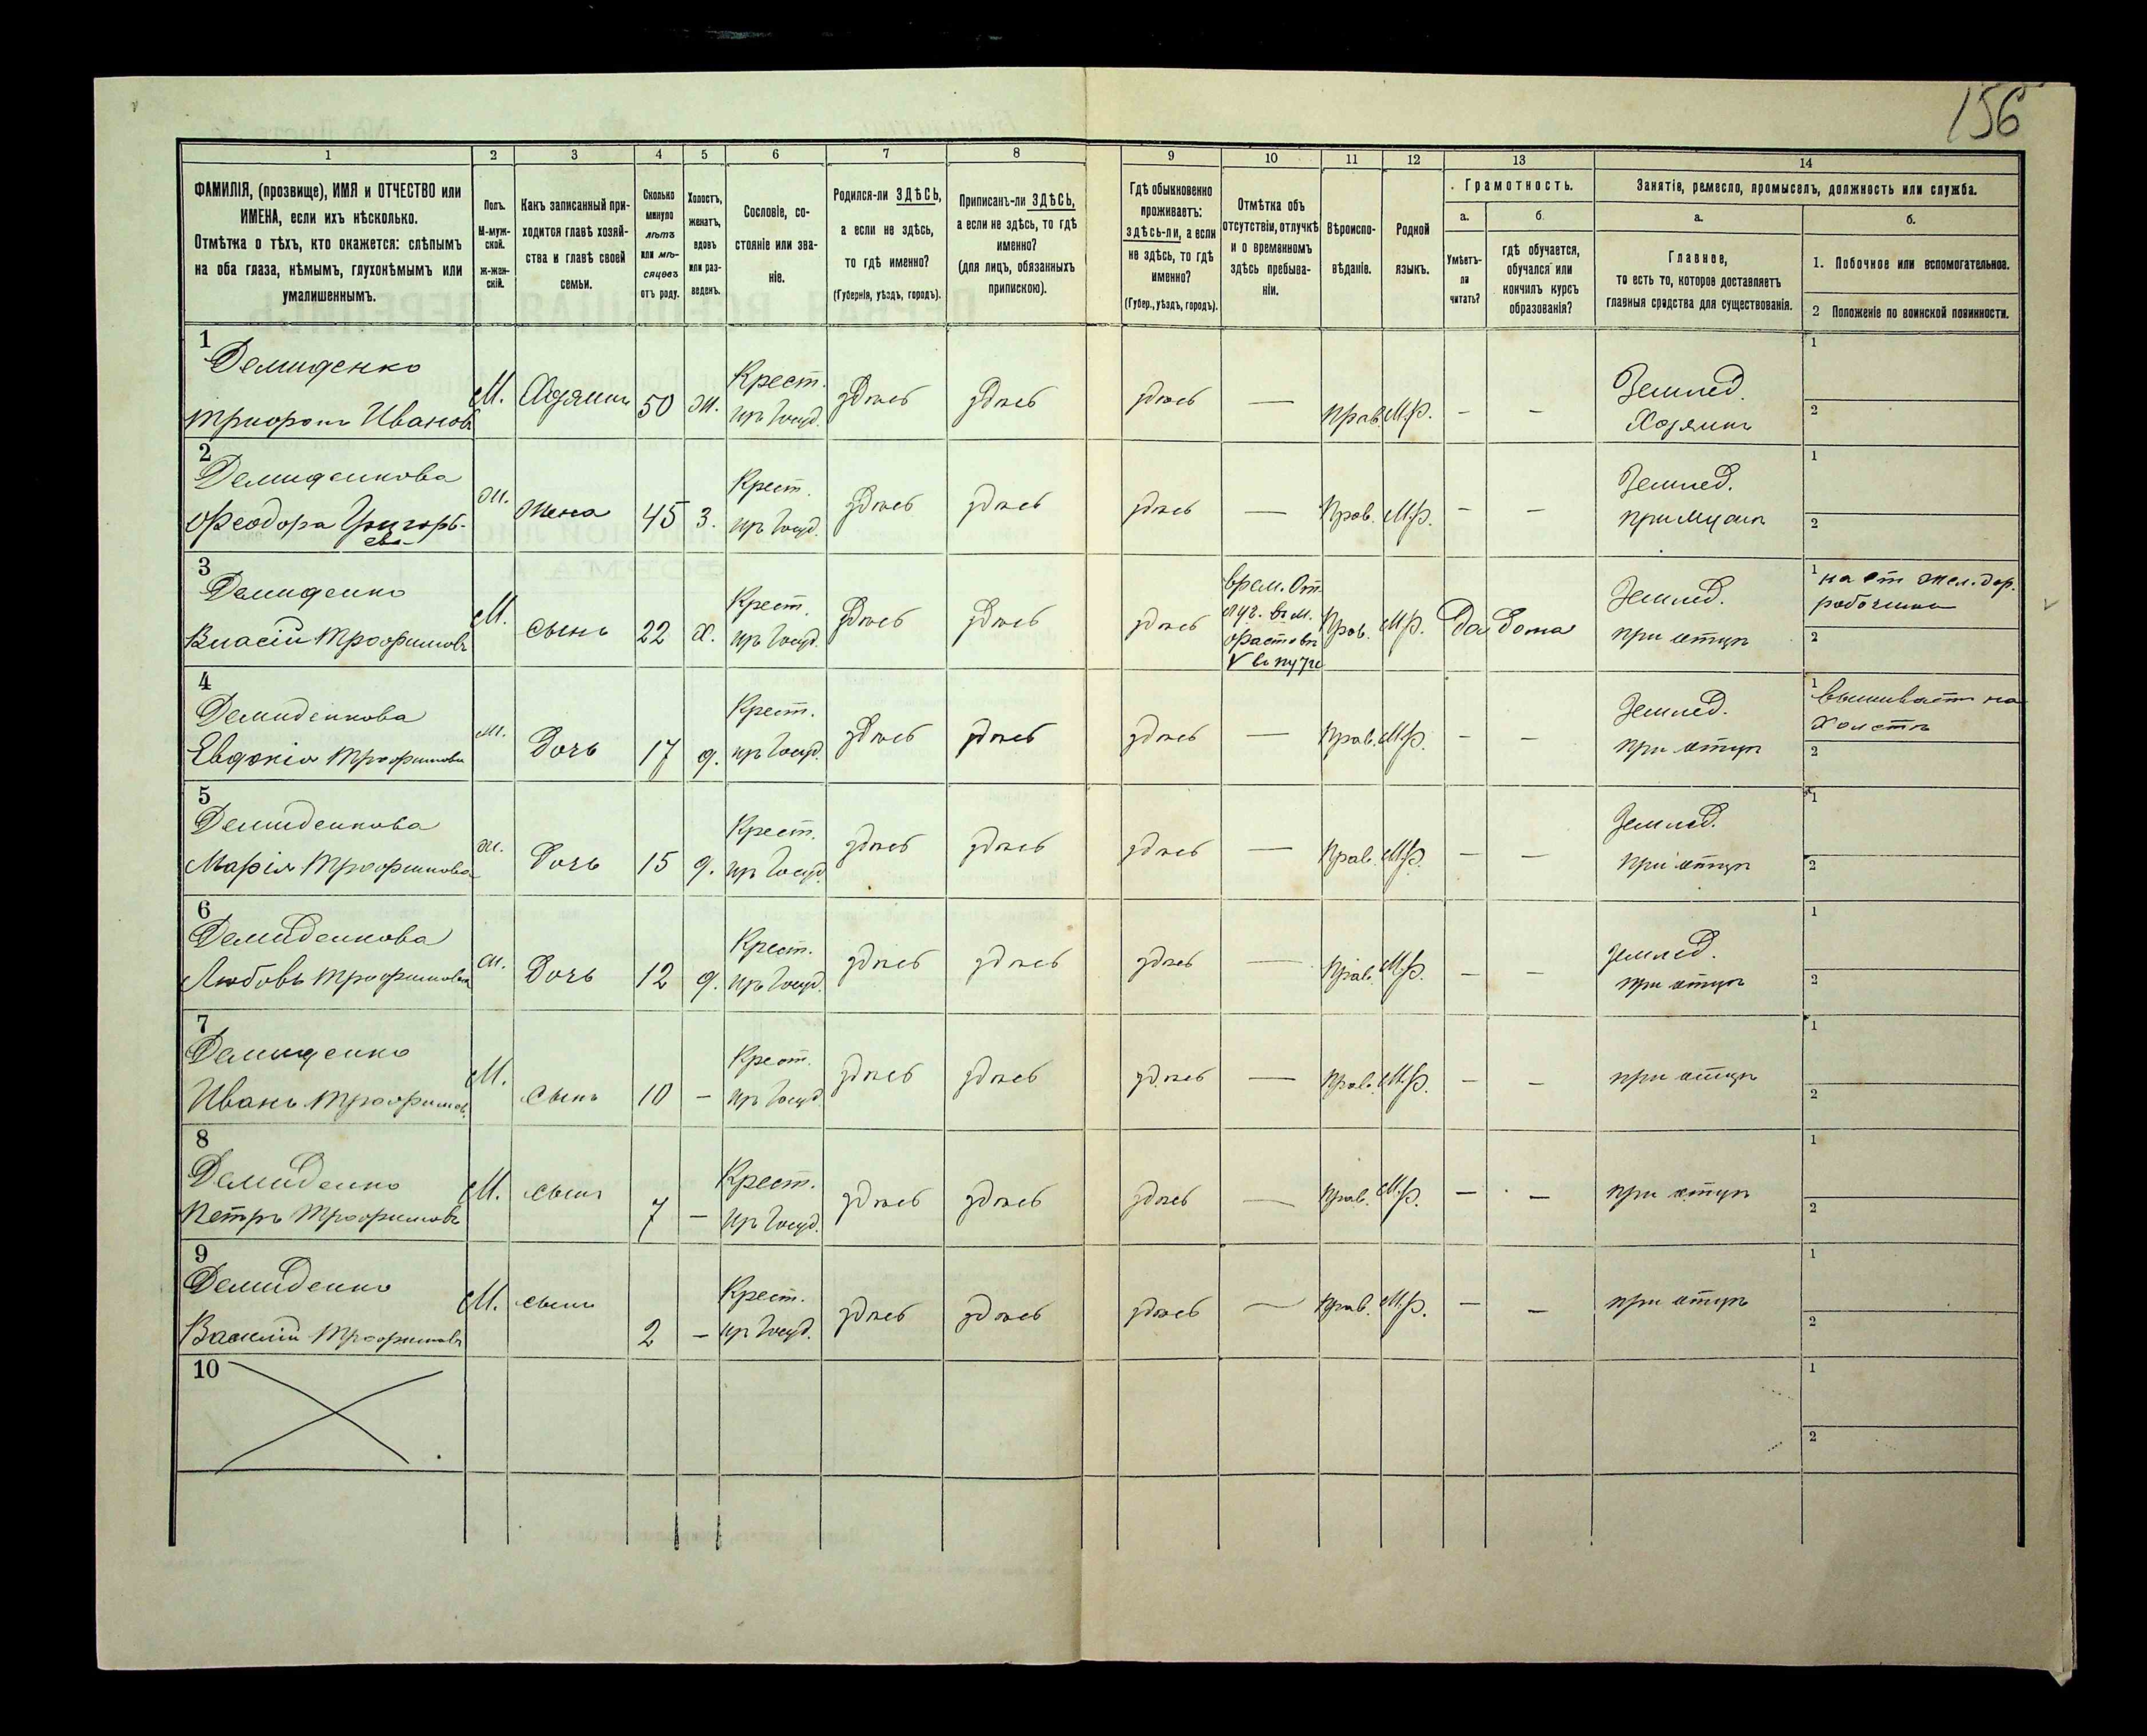 156
1 2 3 4 5 6 7 8 9 10 11 12 13 14
ФАМИЛІЯ, (прозвище), ИМЯ и ОТЧЕСТВО или
ИМЕНА, если ихъ нѣсколько.
Отмѣтка о тѣхъ, кто окажется: слѣпымъ
на оба глаза, нѣмымъ, глухонѣмымъ или
умалишеннымъ.
Полъ.
М-муж-
ской.
ж-жен-
скій.
Какъ записанный при-
ходится главѣ хозяй-
ства и главѣ своей
семьи.
Сколько
минуло
лѣтъ
или мѣ-
сяцевъ
отъ роду.
Холостъ,
женатъ,
вдовъ
или раз-
веденъ.
Сословіе, со-
стояніе или зва-
ніе.
Родился-ли ЗДѢСЬ,
а если не здѣсь,
то гдѣ именно?
(Губернія, уѣздъ, городъ).
Приписанъ-ли ЗДѢСЬ,
а если не здѣсь, то гдѣ
именно?
(для лицъ, обязанныхъ
припискою).
Гдѣ обыкновенно
проживаетъ:
здѣсь-ли, а если
не здѣсь, то гдѣ
именно?
(Губер., уѣздъ, городъ).
Отмѣтка объ
отсутствіи, отлучкѣ
и о временномъ
здѣсь пребыва-
ніи.
Вѣроиспо-
вѣданіе.
Родной
языкъ.
Грамотность.
а.
Умѣетъ-
ли
читать?
б.
гдѣ обучается,
обучался или
кончилъ курсъ
образованія?
Занятіе, ремесло, промыселъ, должность или служба.
а.
Главное,
то есть то, которое доставляетъ
главныя средства для существованія.
б.
1. Побочное или вспомогательное.
2 Положеніе по воинской повинности.
1
Демиденко
Трифонъ Ивановъ
М. Хозяинъ 50 ж.
Крест.
изъ Госуд.
здѣсь здѣсь здѣсь — Прав. М.р. – –
Землед.
Хозяинъ
1
2
2
Демиденкова
Феодора Григорь-
ева
ж. Жена 45 з.
Крест.
изъ Госуд.
здѣсь здѣсь здѣсь — Прав. М.р. – –
Землед.
при мужѣ
1
2
3
Демиденко
Власій Трофимовъ
М. сынъ 22 х.
Крест.
изъ Госуд.
здѣсь здѣсь здѣсь
врем. от
луч. в м.
Фастовъ
Прав. М.р. Да Дома
Землед.
при отцѣ
1 на ст жел. дор.
рабочимъ
2
4
Демиденкова
Евдокія Трофимова
ж. Дочь 17 д.
Крест.
изъ Госуд.
здѣсь здѣсь здѣсь — Прав. М.р. – –
Землед.
при отцѣ
1 вышиваетъ на
холстѣ
2
5
Демиденкова
Марія Трофимова
ж. Дочь 15 д.
Крест.
изъ Госуд.
здѣсь здѣсь здѣсь — Прав. М.р. – –
Землед.
при отцѣ
1
2
6
Демиденкова
Любовь Трофимова
ж. Дочь 12 д.
Крест.
изъ Госуд.
здѣсь здѣсь здѣсь — Прав. М.р. – –
Землед.
при отцѣ
1
2
7
Демиденко
Иванъ Трофимов.
М. сынъ 10 –
Крест.
изъ Госуд.
здѣсь здѣсь здѣсь — Прав. М.р. – –
при отцѣ
1
2
8
Демиденко
Петръ Трофимовъ
М. сынъ 7 –
Крест.
изъ Госуд.
здѣсь здѣсь здѣсь — Прав. М.р. – –
при отцѣ
1
2
9
Демиденко
Василій Трофимовъ
М. сынъ 2 –
Крест.
изъ Госуд.
здѣсь здѣсь здѣсь — Прав. М.р. – –
при отцѣ
1
2
10
1
2